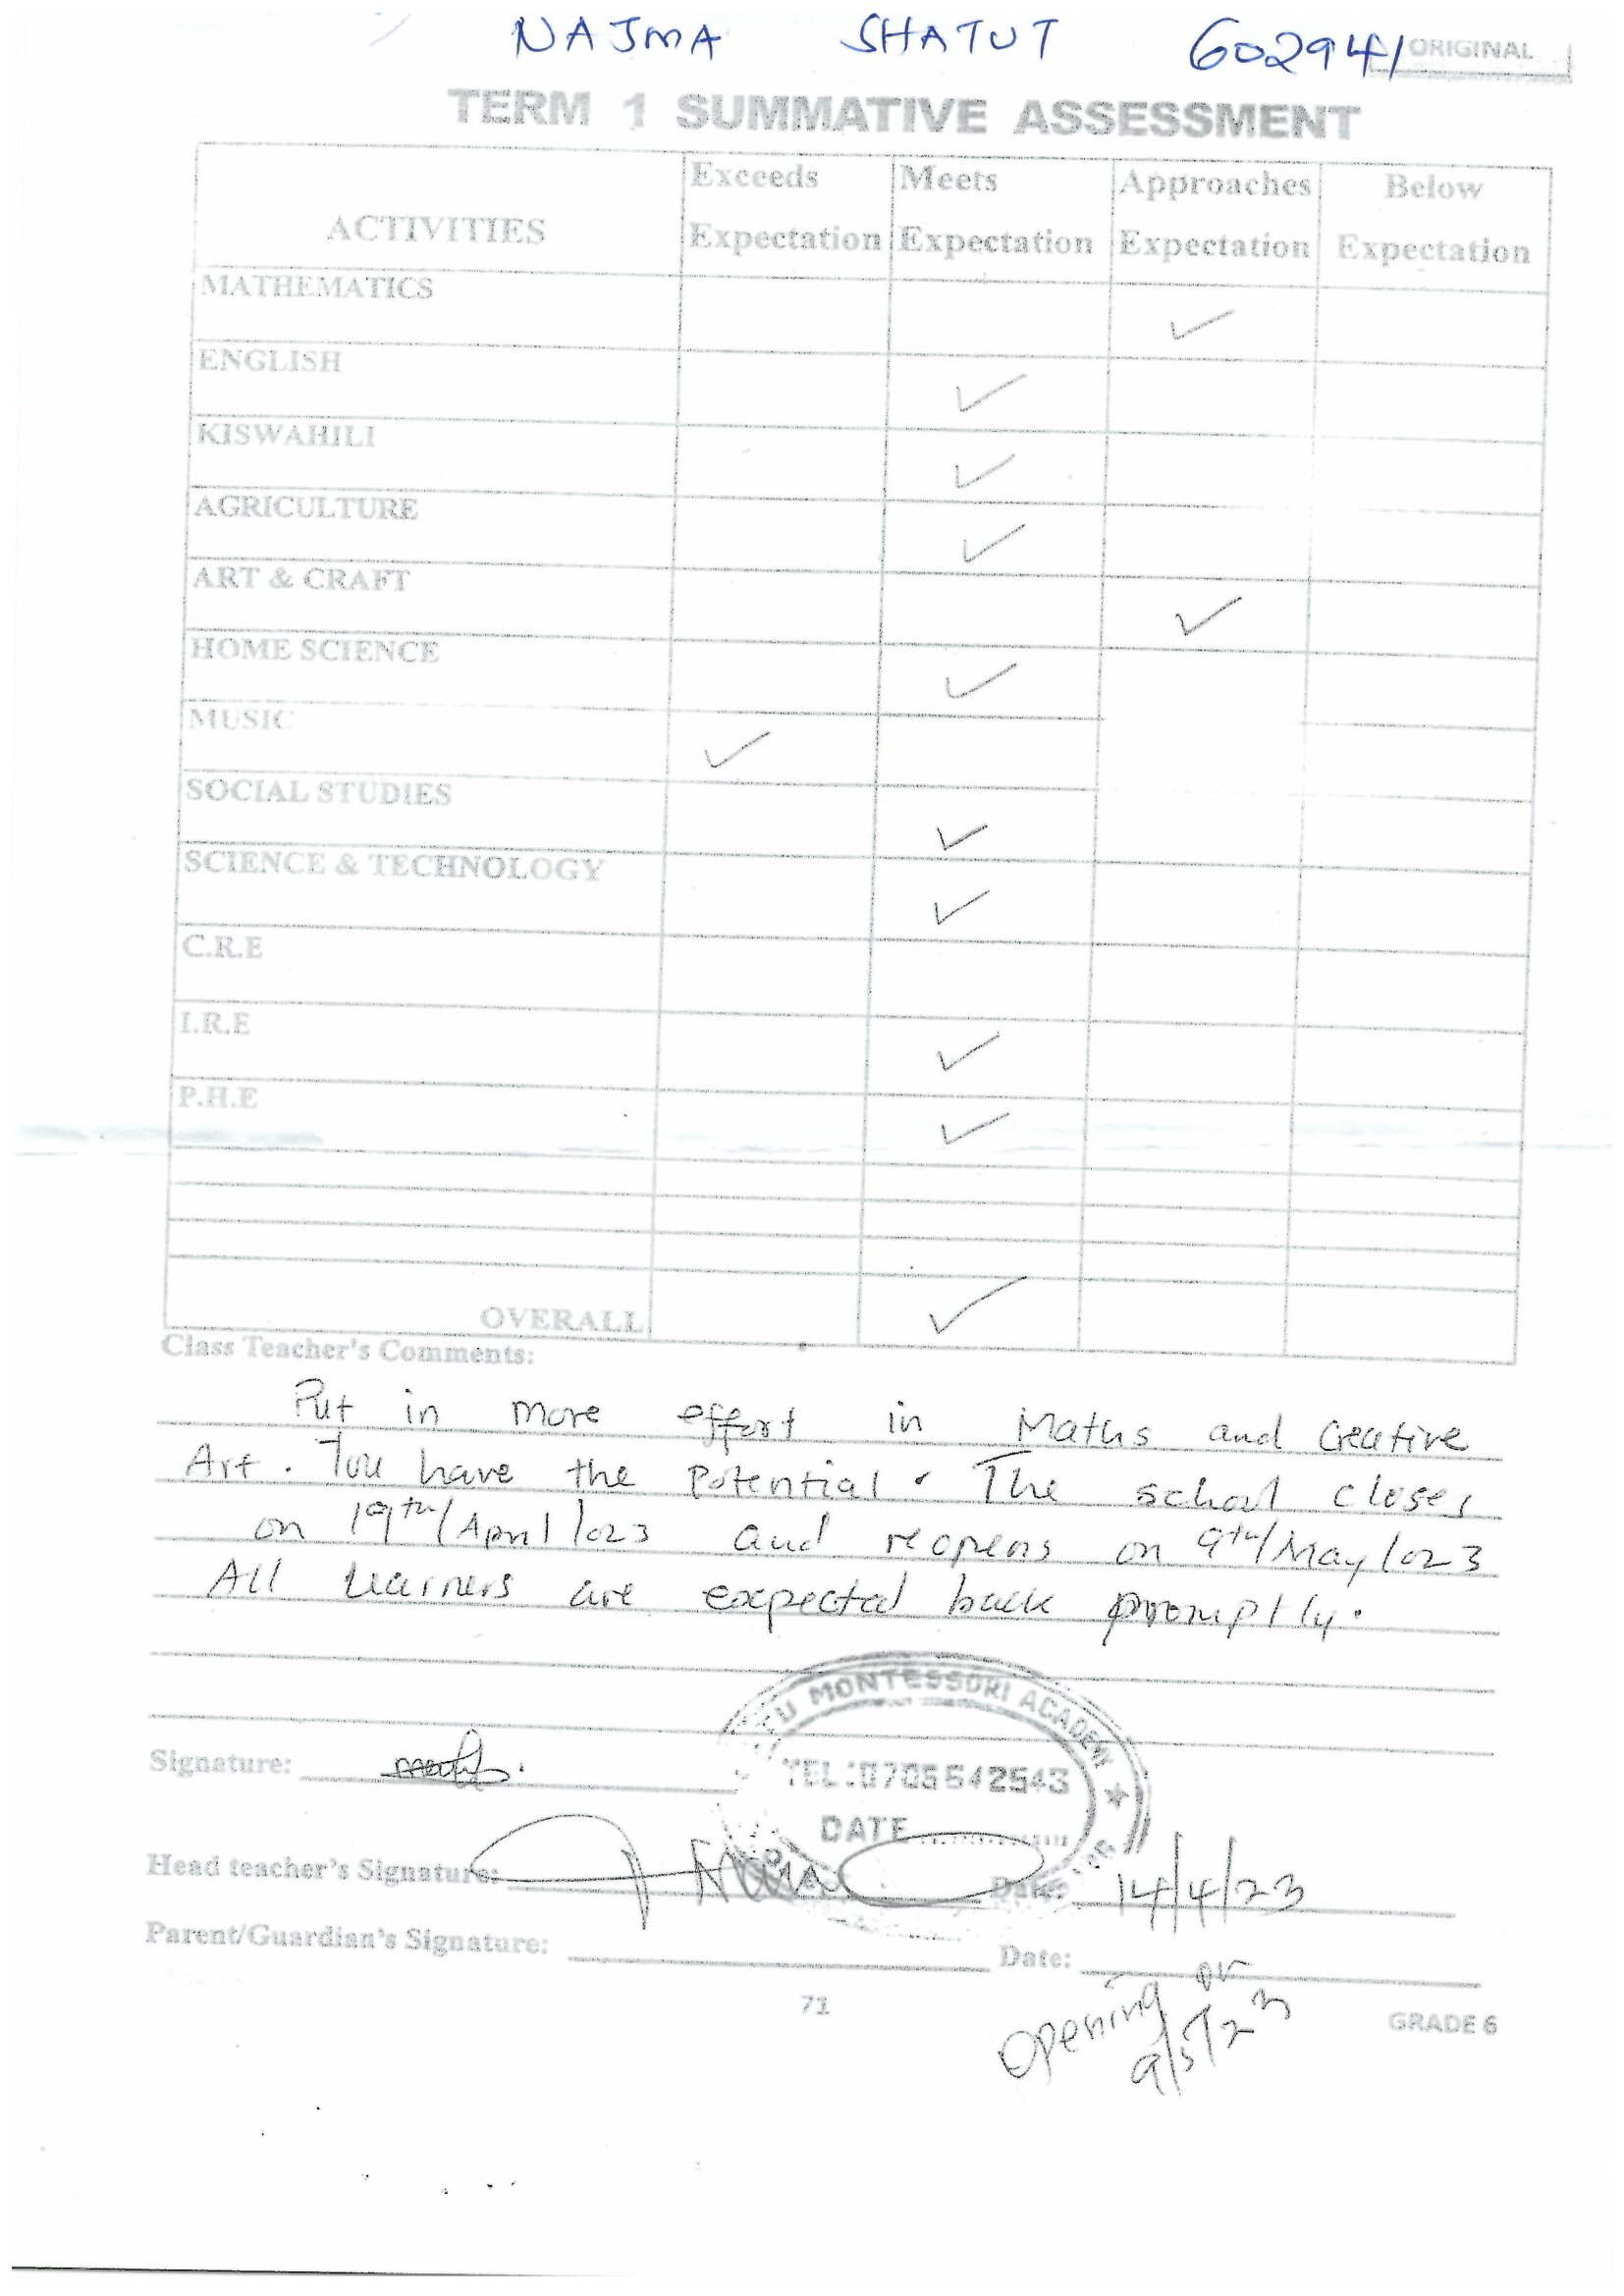 NAJMA SHATUT 602941 ORIGINAL
TERM 1 SUMMATIVE ASSESSMENT
ACTIVITIES Exceeds Expectation Meets Expectation Approaches Expectation Below Expectation
MATHEMATICS ✓
ENGLISH ✓
KISWAHILI ✓
AGRICULTURE ✓
ART & CRAFT ✓
HOME SCIENCE ✓
MUSIC ✓
SOCIAL STUDIES ✓
SCIENCE & TECHNOLOGY ✓
C.R.E
I.R.E ✓
P.H.E ✓
OVERALL ✓
Class Teacher's Comments:
Put in more effort in Maths and Creative
Art. You have the Potential. The school closes
on 19th/April/023 and reopens on 9th/May/023
All learners are expected back promptly.
MONTESSORI ACADEMY
Signature:
TEL:0705642543
DATE
Head teacher's Signature: Date: 14/4/23
Parent/Guardian's Signature: Date:
Opening on
9/5/23
71
GRADE 6